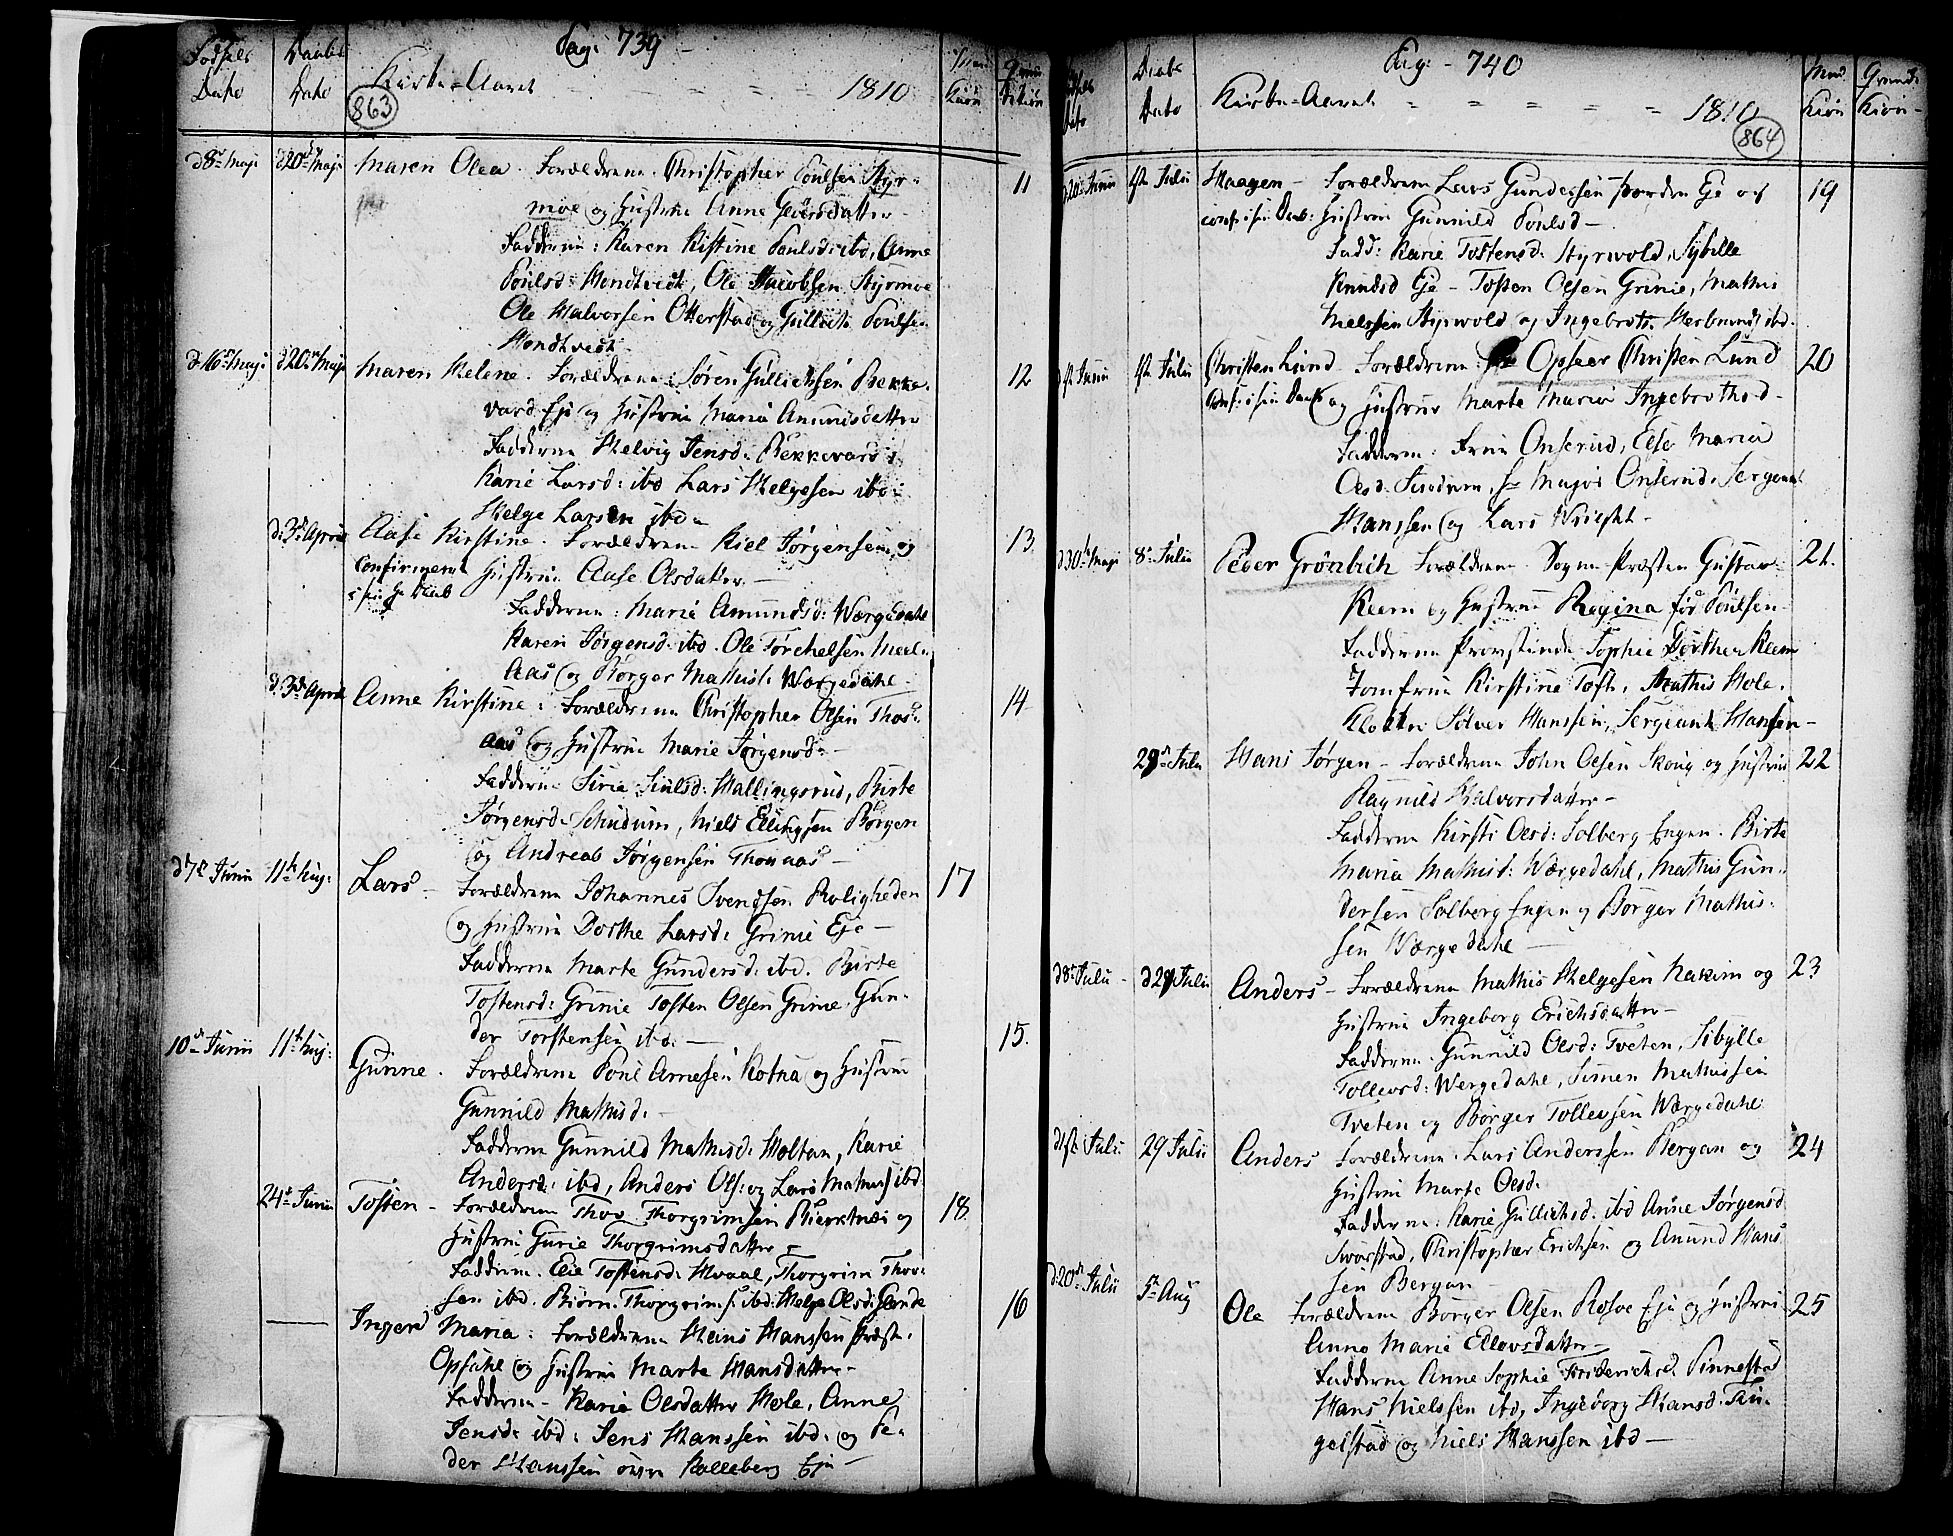 Pag: 739 -
Fødsels Daabs Mand Qvinde
Dato Dato Kirke-Aaret - - - - 1810 Kiøn Kiøn
863
d 8de Maji d 20de Maji Maren Olea. Forældrene Christopher Poulsen Styr- 11
moe og Hustrue Anne
Fadderne: Karen Kistine Poulsd: ibd, Anne
Poulsd: Hendtvedt, Ole Jacobsen Styrmoe
Ole Halvorsen Otterstad og Gullich Poulsen
Hendtvedt
d 16de Maji d 20de Maji Maren Helene. Forældrene: Søren Gullichsen Bekke- 12
vard Eje og Hustrue Maria Amundsdatter
Fadderne Helvig Jensd: Bekkevard
Karie Larsd: ibd Lars Helgesen ibd:
Helge Larsen ibd-
d: 3de April Aase Kirstine. Forældrene Kiel Jørgensen og 13
Confirmeret Hustrue Aase Olsdatter. -
i sin Hie Daab
Fadderne: Marie Amundsd: Wærgedahl
Karen Jørgensd: ibd. Ole Torchelsen
Aas og Børger Mathis: Wærgedahl -
d. 3de April Anne Kirstine: Forældrene Christopher Olsen Thos- 14
aas og Hustrue Marie Jørgensd: -
Fadderne Siria Juulsd: Hallingsrud, Birte
Jørgensd: Schudum, Niels Ellingsen Børgen
og Andreas Jørgensen Thonaas -
d 7de Junii 11te huj: Lars - Forældrene Johannes Svendsen Roligheden 17
og Hustrue Dorthe Larsd: Grinie Eje -
Fadderne Marte Gundersd: ibd. Birte
Tostensd: Grinie Tosten Olsen Grinie Gun-
der Torstensen ibd: -
10de Junii 11te huj: Gunne. Forældrene Poul Arnesen Kotna og Hustrue 15.
Gunnild Mathisd: -
Fadderne Gunnild Mathisd: Holtan, Karie
Andersd: ibd, Anders Ols: og Lars Mathis: ibd
24de Junii Tosten - Forældrene Thov Thorgrimsen Bierknæs og 18
Hustrue Gurie Thorgrimsdatter -
Fadderne. Elie Tostensd: Hvaal, Thorgrim Thov-
sen ibd. Biørn Thorgrims: ibd: Helge Olsd:
Ingerd Maria: Forældrene Hans Hanssen Præst- 16
Opsahl og Hustrue Marte Hansdatter -
Fadderne - Karie Olsdatter Hole, Anne
Jensd: ibd: Jens Hanssen ibd: og Pe-
der Hanssen Kolleberg Eje -
Pag: - 740
Fødsels Daabs Mand Qvinde
Dato Dato Kirke-Aaret - - - - - 1810 Kiøn Kiøn -
864
d 20de Junii 1st Julii Haagen - Forældrene Lars Gundersen Eje og 19
conf: i sin Daab: Hustrue Gunnild Poulsd -
Fadd: Karie Tostensd: Styrvold, Sybille
Knudsd Eje - Tosten Olsen Grinie, Mathis
Nielssen Styrvold og Ingebret ibd.
Junii 1st Julii Christen Lund. Forældrene: Opseer Christen Lund 20
Conf: i sin Daab og Hustrue Marte Maria Ingebrethsd -
Fadderne: Frue Onserud, Else Maria
Olsd. Hr Major Onserud, Sergeant
Hanssen og Lars Wright -
d 30te Maji 8de Julii Peder Grønbech Forældrene. Sogne Præsten Gustav 21.
Keem og Hustrue Regina fød Poulsen -
Fadderne Provstinde Sophie Dorthea Keem
Jomfrue Kirstine Toft, Mathis Hole.
Klokker Sølver Hanssen, Sergeant Hansen -
29de Julii Hans Jørgen - Forældrene John Olsen Skoug og Hustrue 22
Ragnild Halvorsdatter -
Fadderne Kirsti Olsd: Solberg Engen. Birte
Maria Mathisd: Wærgedahl, Mathis Gun-
dersen Solberg Engen og Børger Mathis-
sen Wærgedahl -
d 8de Julii - d 29 Julii Anders - Forældrene Mathis Helgesen Nakim og 23
Hustrue Ingeborg Erichsdatter -
Fadderne. Gunnild Olsd: Tveten, Sibylle
Tollevsd: Wærgedahl, Simen Mathissen
Tveten og Børger Tollevsen Wærgedahl
Julii 29 Julii Anders Forældrene. Lars Anderssen Bergan og 24
Hustrue Marte Olsd.
Fadderne: Karie Gullichsd: ibd Anne Jørgensd
Svarstad, Christopher Erichsen og Amund Hans
sen Bergan -
d: 20de Julii 5te Aug Ole Forældrene Børger Olsen Rosvoe Eje og Hustrue 25
Anne Marie Ellevsdatter -
Fadderne Anne Sophie Friderichsd. Pinnestad
Hans Nielssen ibd, Ingeborg Hansd.
gelstad og Niels Hanssen ibd -